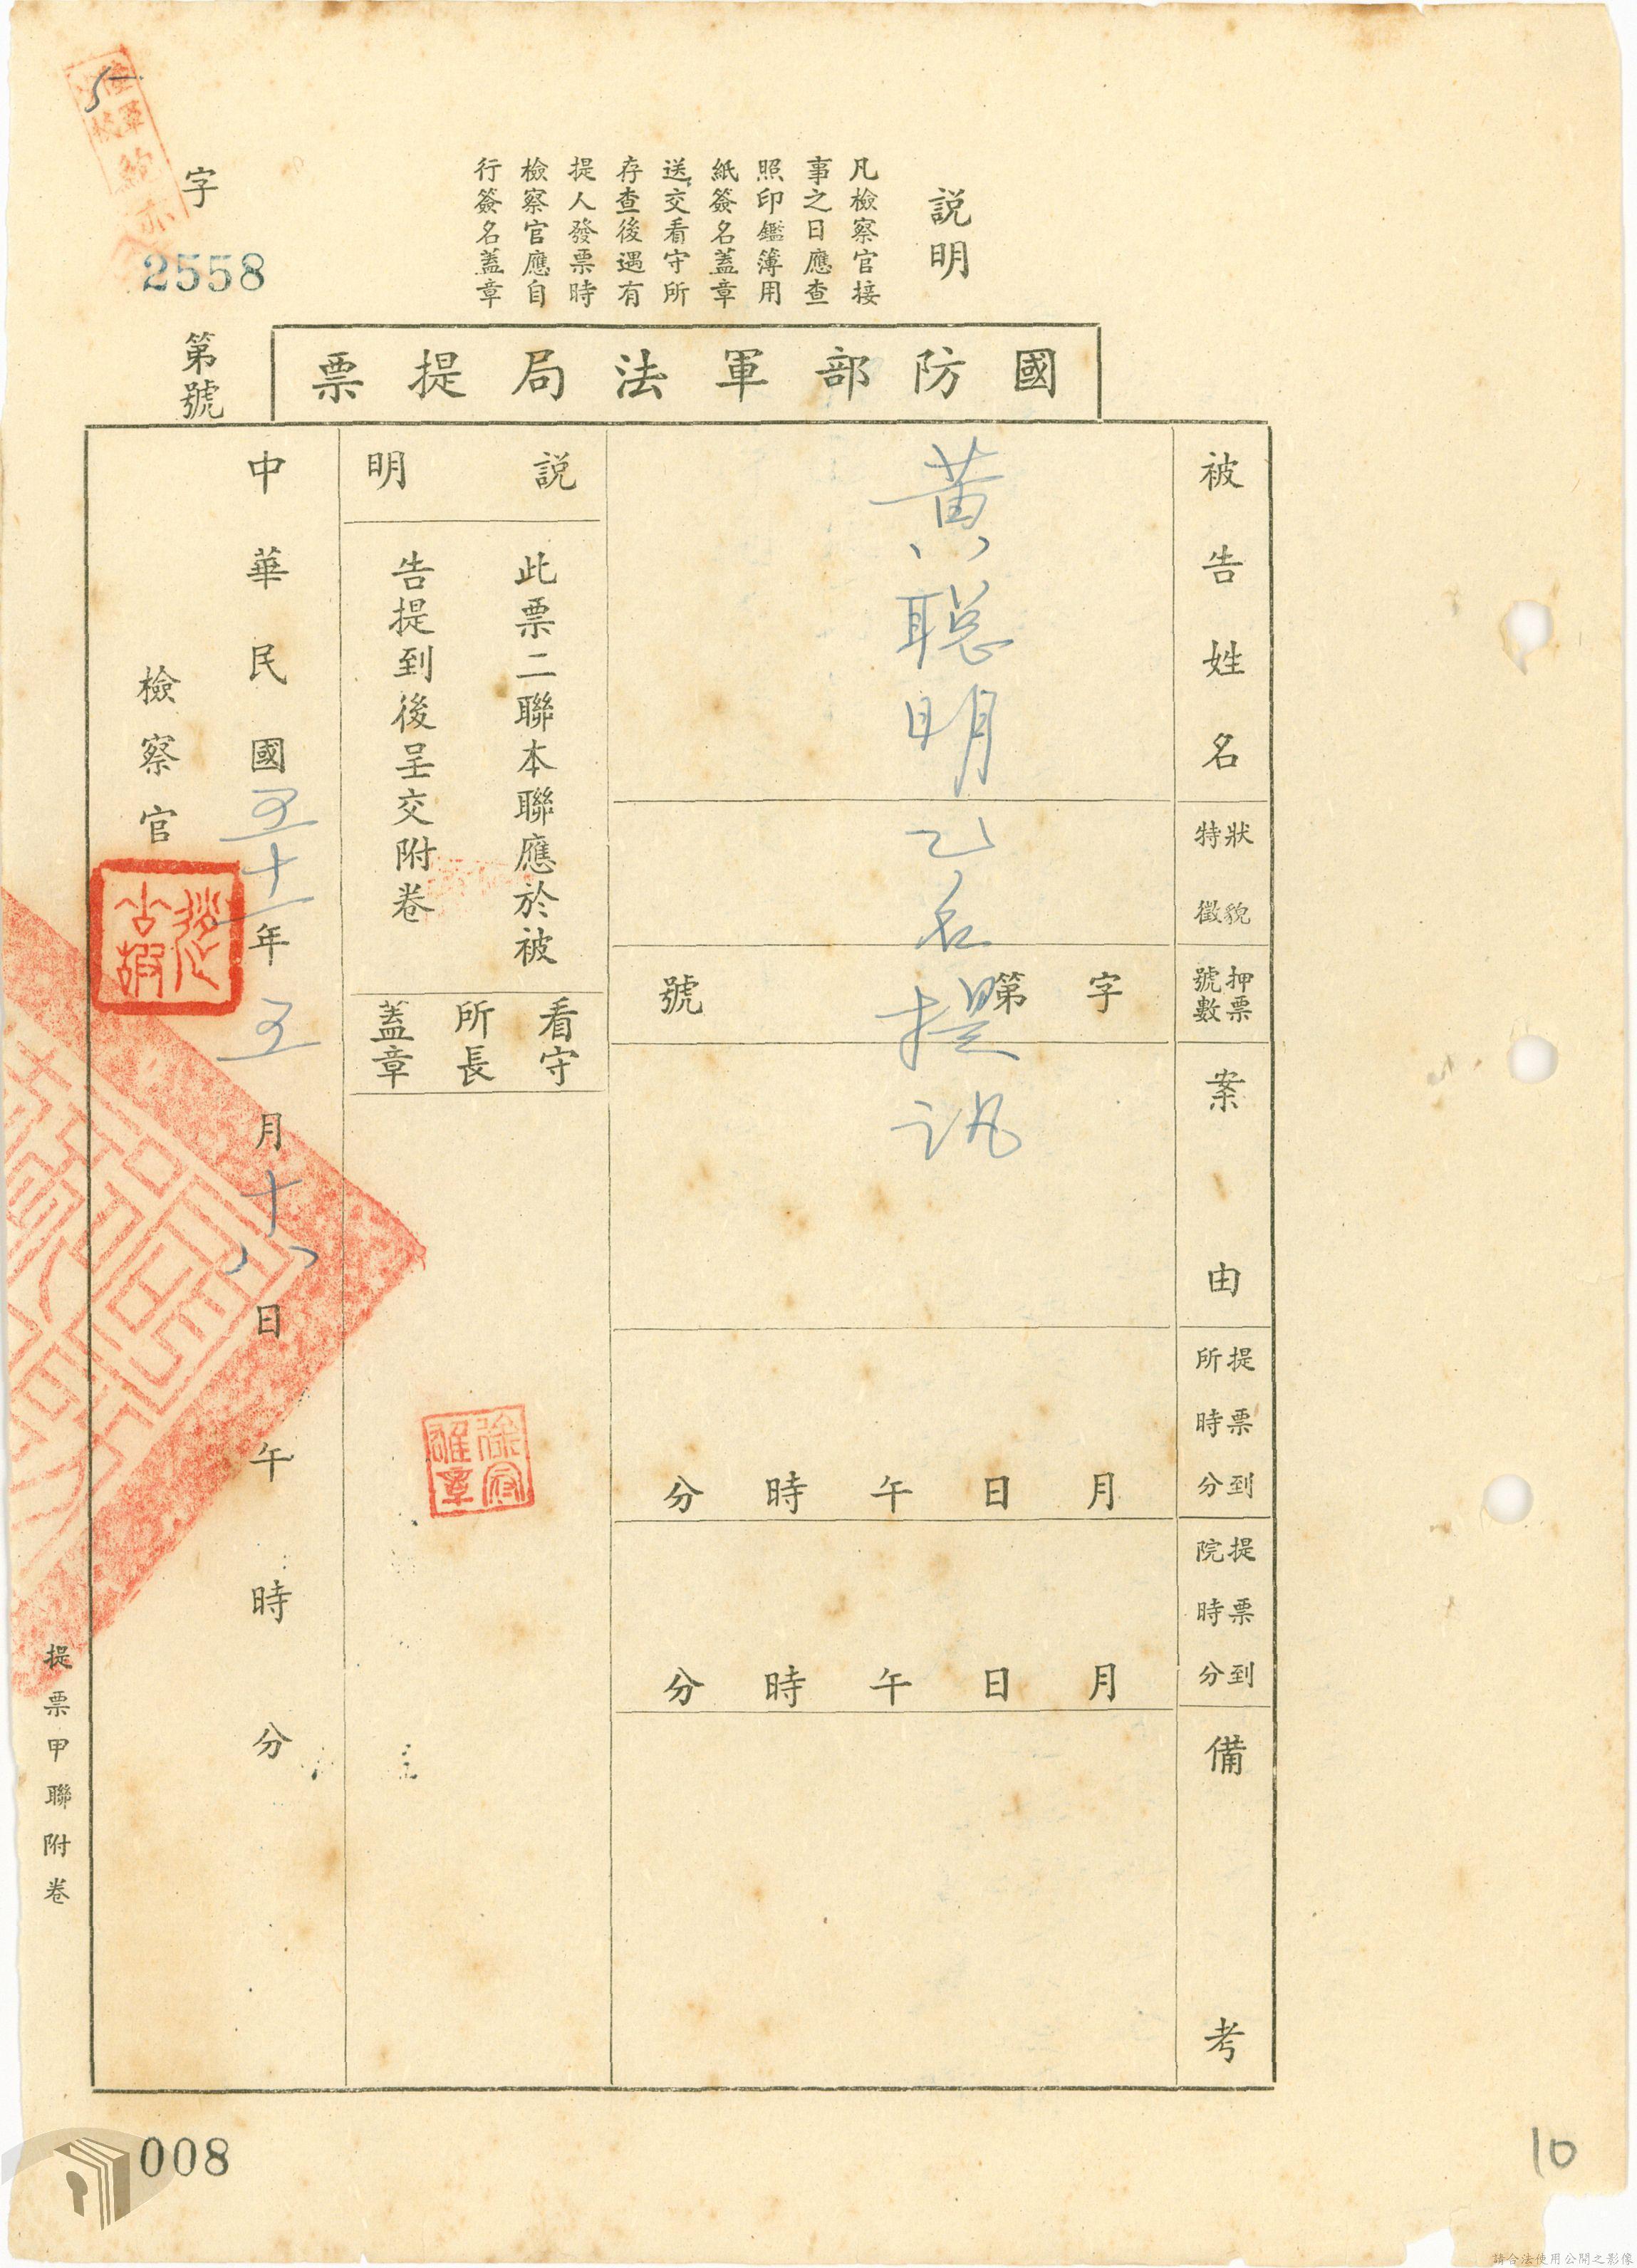 說明
凡檢察官接
事之日應查
照印鑑簿用
紙簽名蓋章
送交看守所
存查後遇有
提人發票時
檢察官應自
行簽名蓋章
字
2558
第號
5
國防部軍法局提票
被告姓名
黃聰明乙名提訊
狀貌特徵
押票號數
字第號
案由
提票到所時分
月日午時分
提票到院時分
月日午時分
備考
說明
此票二聯本聯應於被
告提到後呈交附卷
看守所長蓋章
中華民國五十一年五月十八日午時分
檢察官
提票甲聯附卷
008
10
請合法使用公開之影像